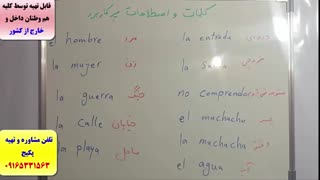 قابل تهیه توسط کلیه
هم وطنان داخل و
خارج از کشور
تلفن مشاوره و تهیه
پکیج
۰۹۱۶۵۳۳۱۵۶۳
کلمات و اصطلاحات پرکاربرد
el hombre مرد
la mujer زن
la guerra جنگ
la calle خیابان
la playa ساحل
la entrada ورودی
la Salida خروجی
no comprendo متوجه نمی شوم
el machacho پسر
la machacha دختر
el agua آب